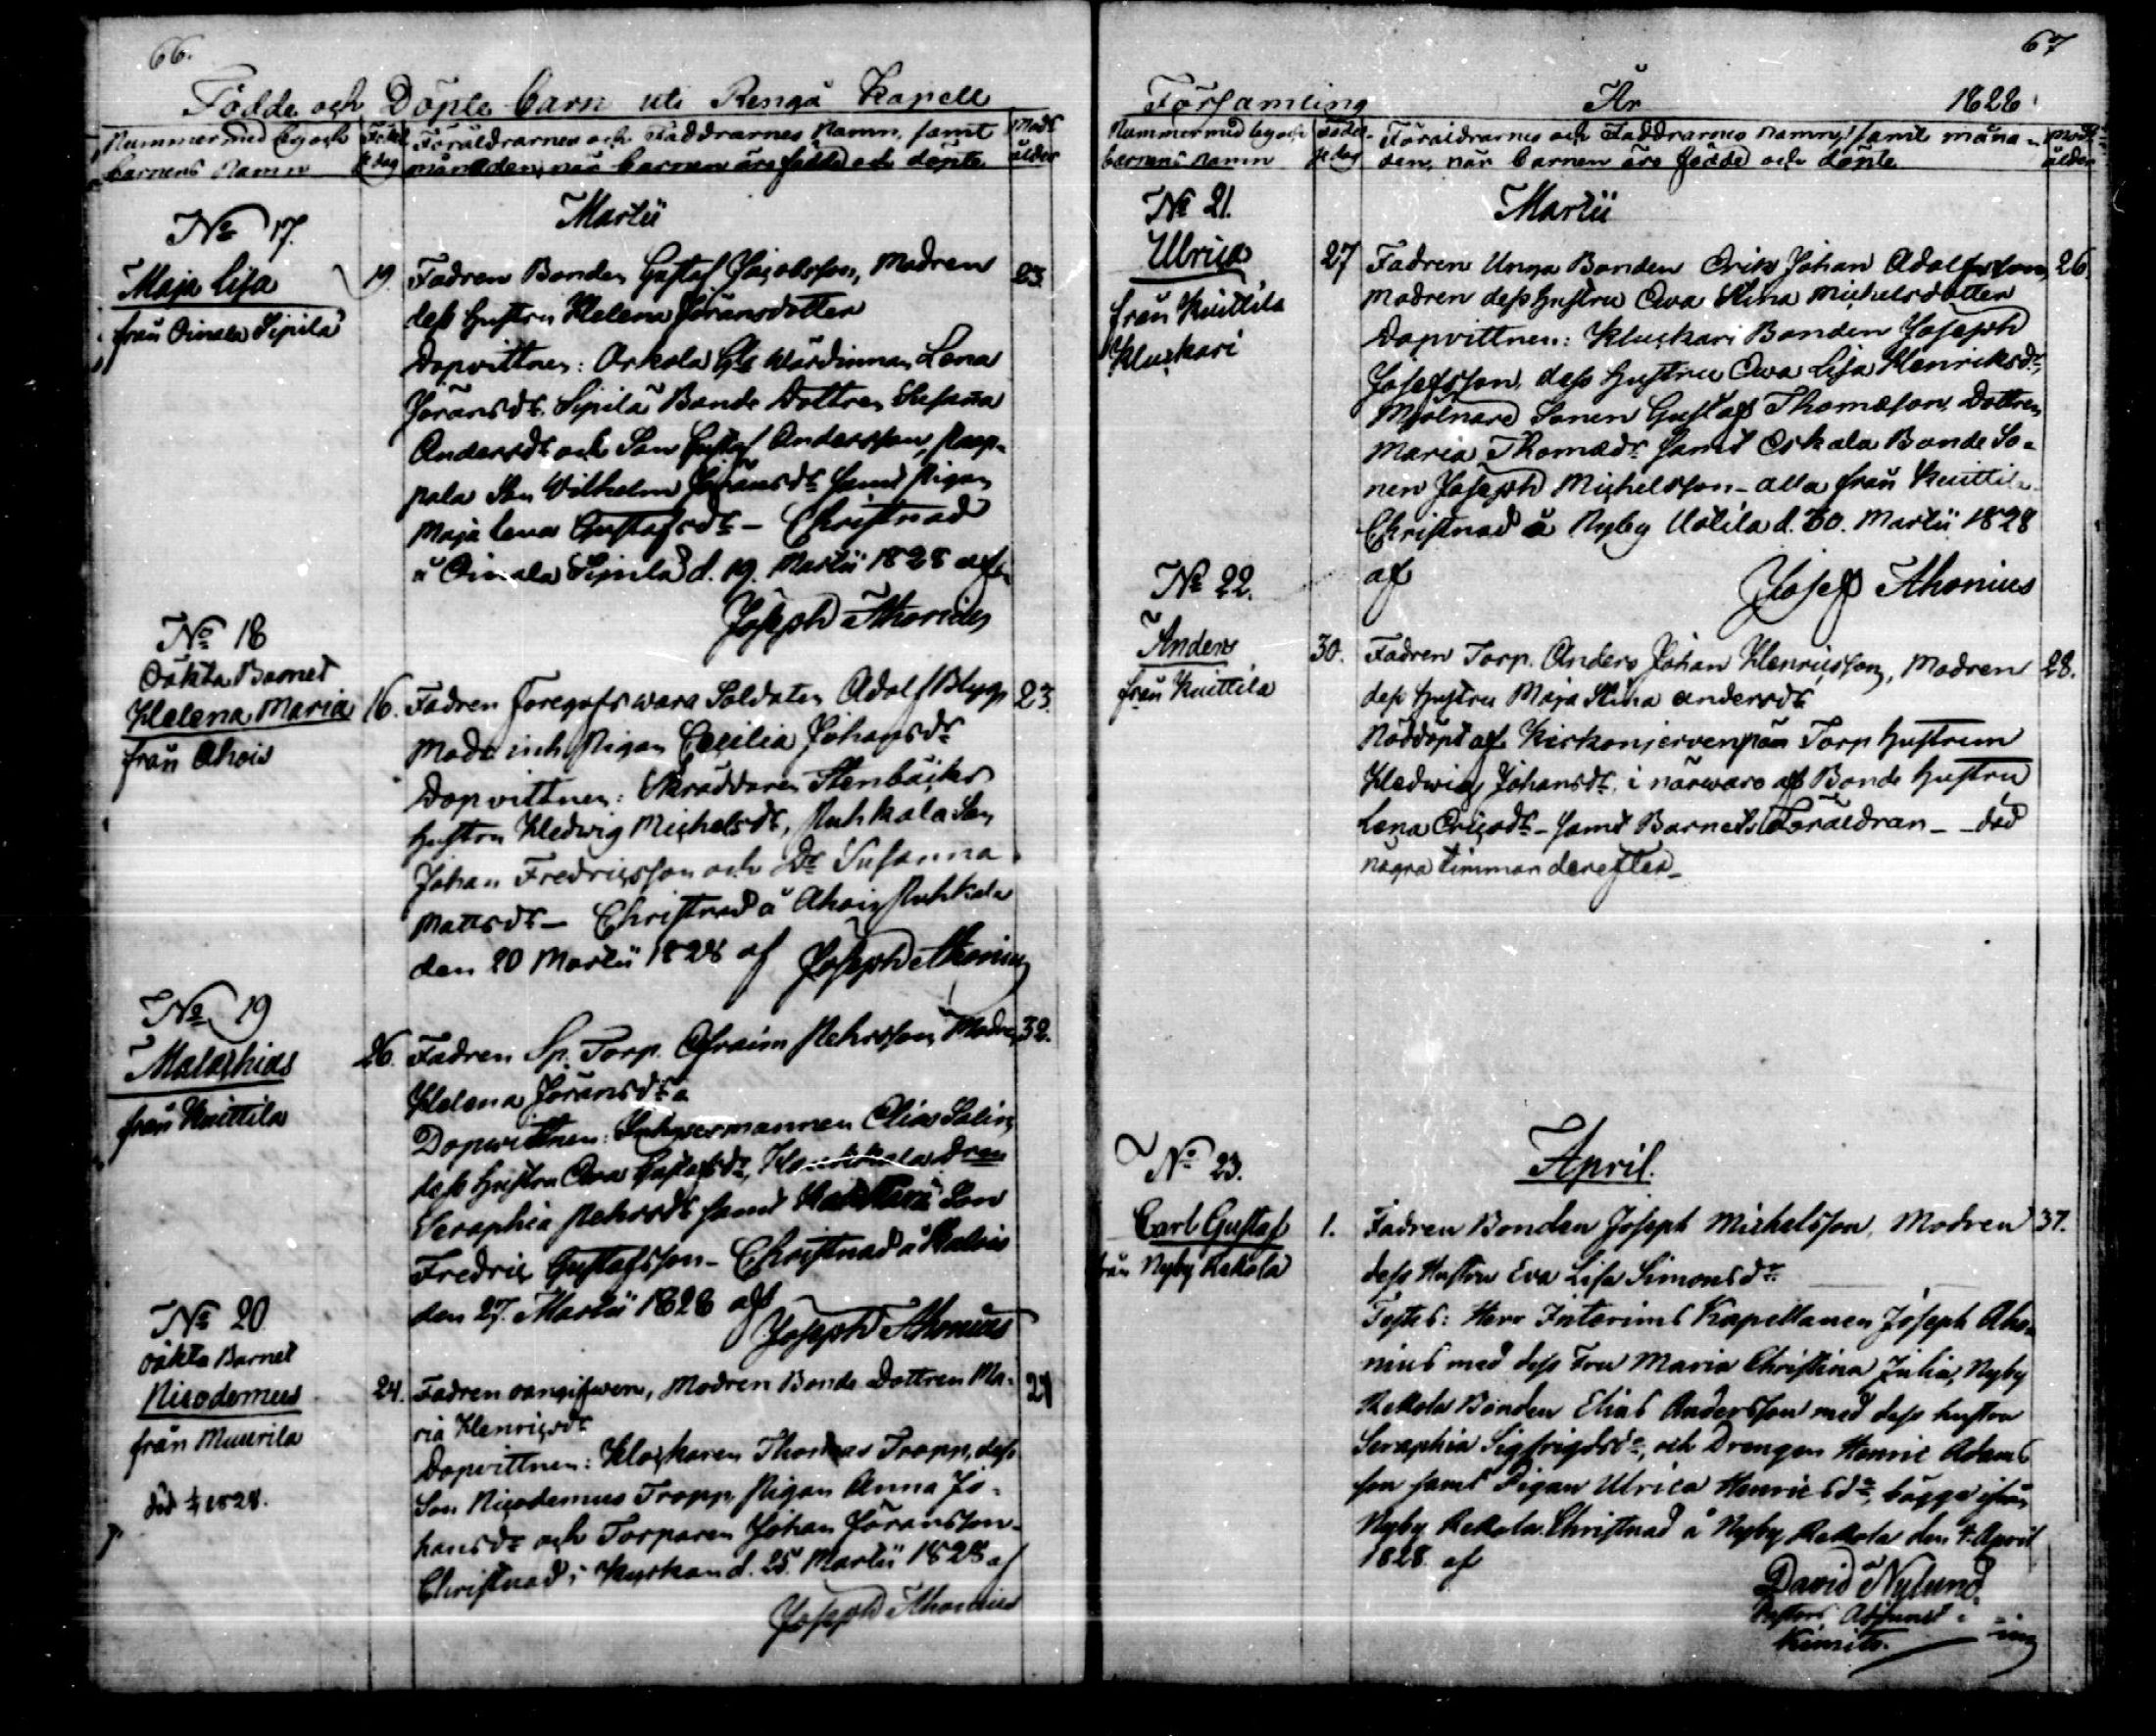 66.
Födde och Döpte barn uti Rengå Kapell
Nummer med by och barnens Namn
Födel se dag
Föräldrarnes och Faddrarnes Namn, samt
månaden, när barnen äro födde och döpte
Mods ålder
Martii
No 17.
Maja Lisa
från Oinala Sipilä
19.
Fadren Bonden Gustaf Jacobsson, Modren
23.
dess hustru Helena Göransdotter
Dopvittnen: Arkola Wärdinnan Lena
Göransdr. Sipilä Bonde Dottren Susanna
Andersdr och Son Gustaf Andersson,
pala Son Vilhelm Göransdr samt Pigan
Maja Lena Gustafsdr – Christnad
å Oinala Sipilä d. 19. Martii 1828 af
Joseph Ahonius
No 18
Oäkta Barnet
Helena Maria
från Ahois
16.
Fadren föregifs wara Soldaten Adolf Blygg
23.
Modr inh Pigan Cecilia Johansdr
Dopvittnen: Skräddaren Stenbäcks
hustru Hedwig Michelsdr, Ruhkala Son
Johan Fredricsson och Dr Susanna
Mattsdr – Christnad å Ahois Ruhkala
den 20 Martii 1828 af Joseph Ahonius
No 19
Malachias
från Kuittila
26.
Fadren Sp. Torp. Efraim Pehrsson, Modren
32.
Helena Göransdr
Dopvittnen: Elias Salin,
dess hustru Ewa Gustafsdr, dren
Seraphia Pehrsdr samt Son
Fredric Gustafsson – Christnad å
den 27. Martii 1828 af
Joseph Ahonius
No 20
oäkta Barnet
Nicodemus
från Muurila
död 1828.
24.
Fadren oangifwen, Modren Bonde Dottren Ma-
24
ria Henricsdr
Dopvittnen: Klockaren Thomas Tropp, dess
Son Nicodemus Tropp, Pigan Anna Jo-
hansdr och Torparen Johan Göransson –
Christnad i Kyrkan d. 25. Martii 1828 af
Joseph Ahonius
67
Församling År 1828
Nummer med by och barnens namn
Födel se dag
Föräldrarnes och Faddrarnes namn, samt måna-
den, när barnen äro födde och döpte
Mods ålder
Martii
No 21.
Ulrica
från Kuittila
Kluskari
27
Fadren Unga Bonden Erik Johan Adolfsson,
26.
Modren dess hustru Ewa Stina Michelsdotter
Dopvittnen: Kluskari Bonden Joseph
Josefsson, dess hustru Ewa Lisa Henriksdr,
Mjölnare Sonen Gustaf Thomasson, Dottren
Maria Thomadr samt Eskala Bonde So-
nen Joseph Michelsson – alla från Kuittila
Christnad å Nyby Uotila d. 30. Martii 1828
af
Josef Ahonius
No 22.
Anders
från Kuittila
30.
Fadren Torp. Anders Johan Henricsson, Modren
28.
dess hustru Maja Stina Andersdr
Nöddöpt af Kirkonjervenpää Torp hustrun
Hedwig Johansdr. i närwaro af Bonde hustru
Lena Ericsdr – samt Barnets Föräldran – död
några timmar derefter –
April.
No 23.
Carl Gustaf
från Nyby Rekola
1.
Fadren Bonden Joseph Michelsson, Modren
37.
dess Hustru Eva Lisa Simonsdr
Testes: Herr Interims Kapellanen Joseph Aho-
nius med dess Fru Maria Christina Julia, Nyby
Rekola Bonden Elias Andersson med dess hustru
Seraphia Sigfridsdr, och Drengen Henric Adams
son samt Pigan Ulrica Henricsdr, bägge ifrån
Nyby Rekola. Christnad å Nyby Rekola den 4. April
1828 af
David Nylund.
Pastors Adjunct i
Kimito.